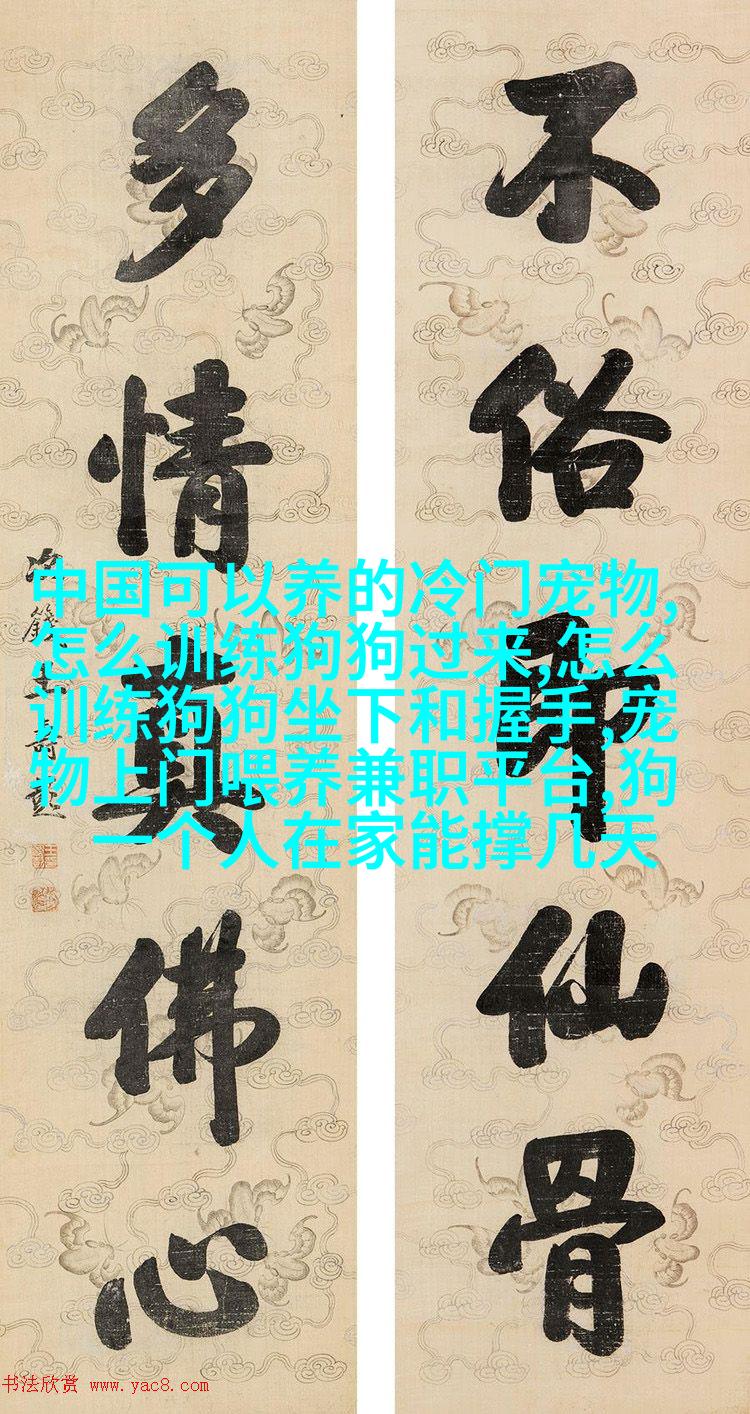 不俗即仙骨
多情真佛心
中国可以养的冷门宠物,
怎么训练狗狗过来,怎么
训练狗狗坐下和握手,宠
物上门喂养兼职平台,狗
一个人在家能撑几天
书法欣赏 www.yac8.com